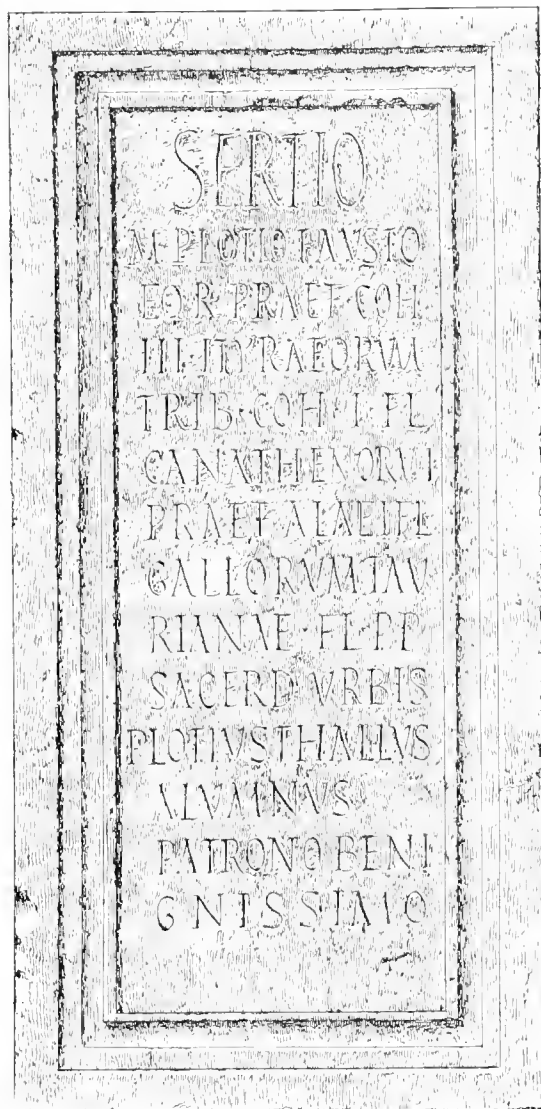 SERTIO
M PLOTIO FAVSTO
EQ R PRAEF COH
III ITYRAEORVM
TRIB COH I FL
CANATHENORVM
PRAEF ALAE I FL
GALLORVM TAV
RIANAE FL PP
SACERD VRBIS
PLOTIVS THALLVS
ALVMNVS
PATRONO BENI
GNISSIMO